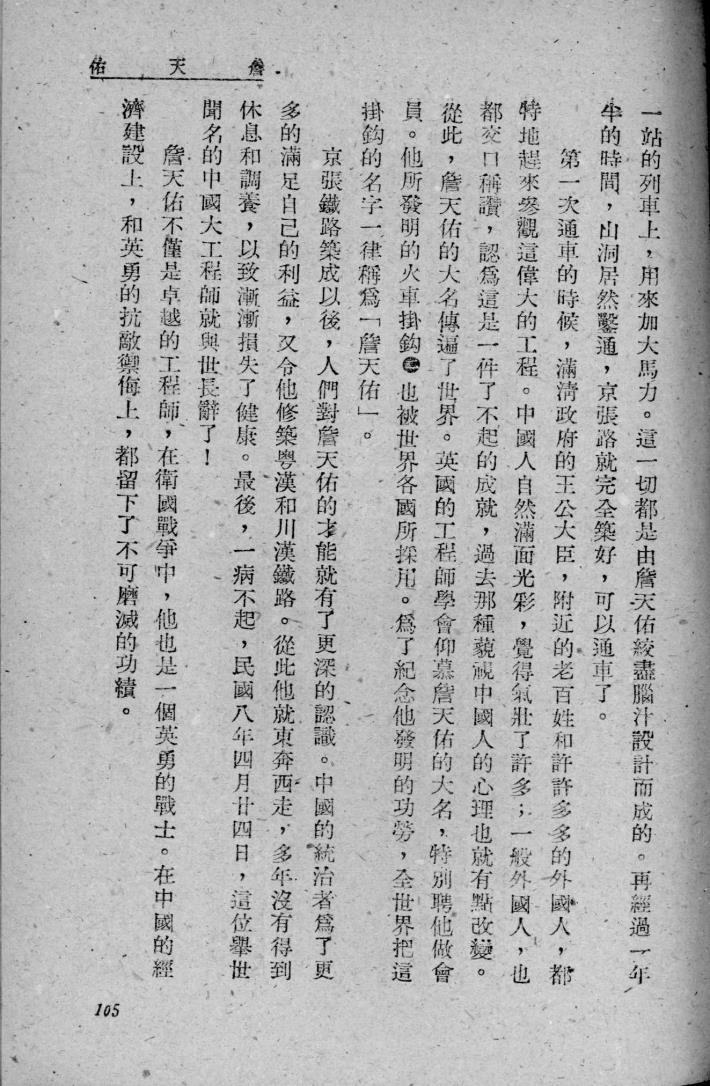 詹天佑
一站的列車上，用來加大馬力。這一切都是由詹天佑絞盡腦汁設計而成的。再經過一年
半的時間，山洞居然鑿通，京張路就完全築好，可以通車了。
第一次通車的時候，滿淸政府的王公大臣，附近的老百姓和許許多多的外國人，都
特地趕來參觀這偉大的工程。中國人自然滿面光彩，覺得氣壯了許多；一般外國人，也
都交口稱讚，認爲這是一件了不起的成就，過去那種藐視中國人的心理也就有點改變。
從此，詹天佑的大名傳遍了世界。英國的工程師學會仰慕詹天佑的大名，特別聘他做會
員。他所發明的火車掛鈎㊁也被世界各國所採用。爲了紀念他發明的功勞，全世界把這
掛鈎的名字一律稱爲「詹天佑」。
京張鐵路築成以後，人們對詹天佑的才能就有了更深的認識。中國的統治者爲了更
多的滿足自己的利益，又令他修築粤漢和川漢鐵路。從此他就東奔西走，多年沒有得到
休息和調養，以致漸漸損失了健康。最後，一病不起，民國八年四月廿四日，這位舉世
聞名的中國大工程師就與世長辭了！
詹天佑不僅是卓越的工程師，在衛國戰爭中，他也是一個英勇的戰士。在中國的經
濟建設上，和英勇的抗敵禦侮上，都留下了不可磨滅的功績。
105